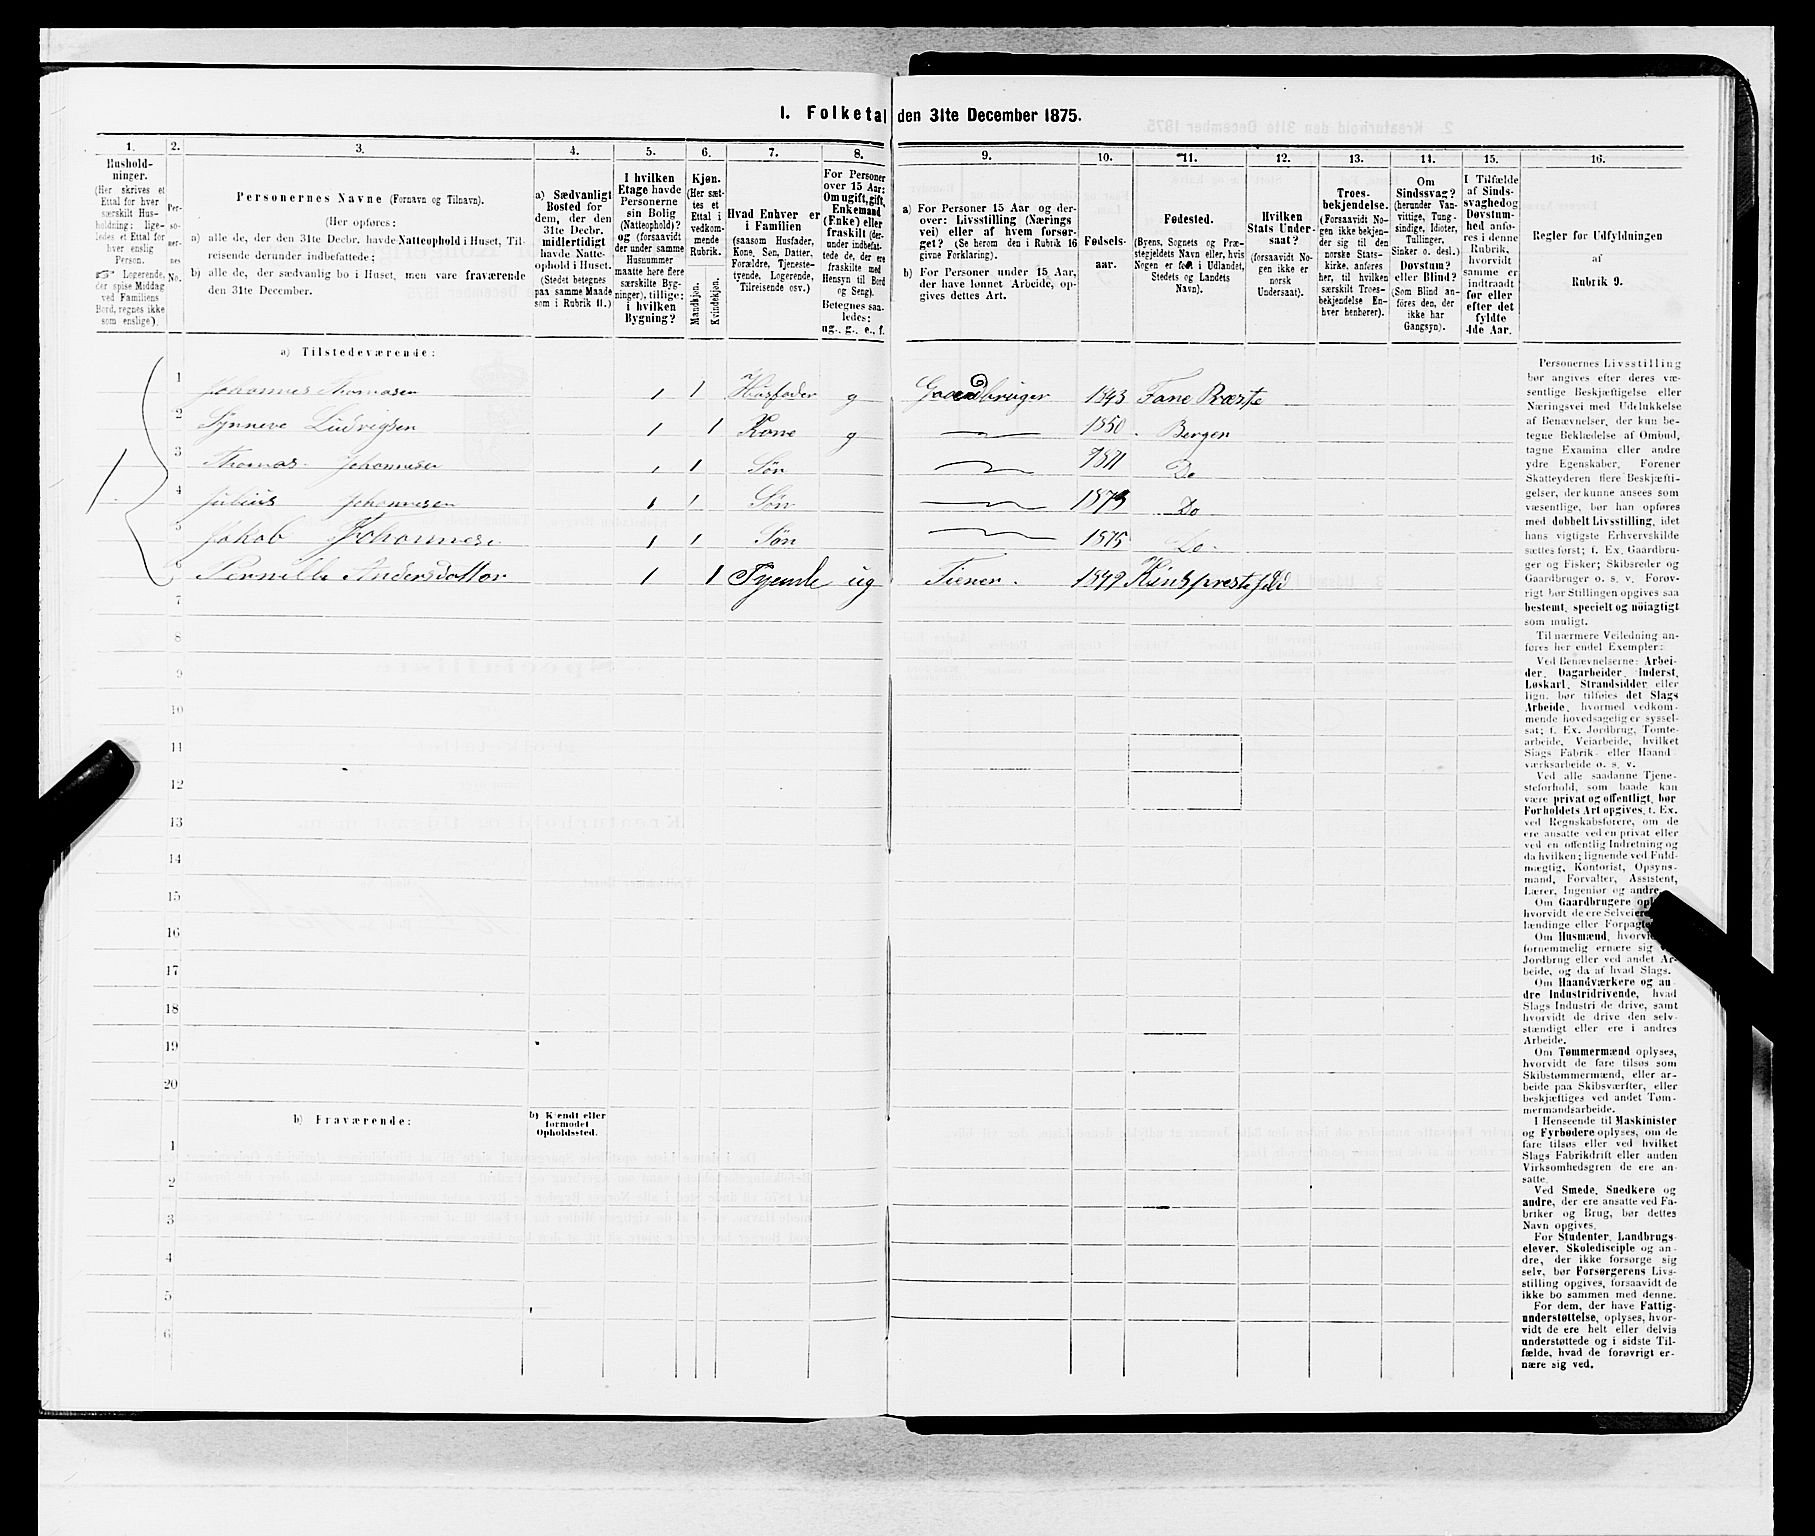 I. Folketal den 31te December 1875.
1. 2. 3. 4. 5. 6. 7. 8. 9. 10. 11. 12. 13. 14. 15. 16.
Hushold-
ninger.
(Her skrives et
Ettal for hver
særskilt Hus-
holdning; lige-
ledes et Ettal for
hver enslig
Person.
☞ Logerende,
der spise Middag
ved Familiens
Bord, regnes ikke
som enslige).
Per-
so-
ner-
nes
No.
Personernes Navne (Fornavn og Tilnavn).
(Her opføres:
a) alle de, der den 31te Decbr. havde Natteophold i Huset, Til-
reisende derunder indbefattede;
b) alle de, der sædvanlig bo i Huset, men vare fraværende
den 31te December.
a) Sædvanligt
Bosted for
dem, der den
31te Decbr.
midlertidigt
havde Natte-
ophold i Huset.
(Stedet betegnes
paa samme Maade
som i Rubrik 11.)
I hvilken
Etage havde
Personerne
sin Bolig
(Natteophold)?
og (forsaavidt
der under samme
Husnummer
maatte høre flere
særskilte Byg-
ninger), tillige:
i hvilken
Bygning?
Kjøn.
(Her sæt-
tes et
Ettal i
vedkom-
mende
Rubrik.
Mandkjøn.
Kvindekjøn.
Hvad Enhver er
i Familien
(saasom Husfader,
Kone, Søn, Datter,
Forældre, Tjeneste-
tyende, Logerende,
Tilreisende osv.)
For Personer
over 15 Aar:
Om ugift, gift,
Enkemand
(Enke) eller
fraskilt (der-
under indbefat-
tede de, der ere
fraskilte med
Hensyn til Bord
og Seng).
Betegnes saa-
ledes:
ug., g., e., f.
a) For Personer 15 Aar og der-
over: Livsstilling (Nærings
vei) eller af hvem forsør-
get? (Se herom den i Rubrik 16
givne Forklaring).
b) For Personer under 15 Aar,
der have lønnet Arbeide, op-
gives dettes Art.
Fødsels-
aar.
Fødested.
(Byens, Sognets og Præ-
stegjeldets Navn eller, hvis
Nogen er født i Udlandet,
Stedets og Landets
Navn).
Hvilken
Stats Under-
saat?
(forsaavidt No-
gen ikke er
norsk
Undersaat).
Troes-
bekjendelse.
(Forsaavidt No-
gen ikke bekjen-
der sig til den
norske Stats-
kirke, anføres
her, til hvilken
særskilt Troes-
bekjendelse En-
hver henhører).
Om
Sindssvag?
(herunder Van-
vittige, Tung-
sindige, Idioter,
Tullinger,
Sinker o. desl.)
Døvstum?
eller Blind?
(Som Blind an-
føres den, der
ikke har
Gangsyn).
I Tilfælde
af Sinds-
svaghed og
Døvstum-
hed anfø-
res i denne
Rubrik,
hvorvidt
samme er
indtraadt
før eller
efter det
fyldte
4de Aar.
Regler for Udfyldningen
af
Rubrik 9.
a) Tilstedeværende:
1 Johannes Thomasen 1 1 Husfader g Gaardbruger 1843 Fane Præste
2 Synneve Ludvigsen 1 1 Kone g 1850 Bergen
3 Thomas Johannesen 1 1 Søn 1871 Do
4 Julius Johannesen 1 1 Søn 1873 Do
5 Jakob Johannese 1 1 Søn 1875 Do
6 Pernille Andersdatter 1 1 Tyende ug Tiener. 1849
1.
7
8
9
10
11
12
13
14
15
16
17
18
19
20
b) Fraværende:
b) Kjendt eller
formodet
Opholdssted.
1
2
3
4
5
6
Personernes Livsstilling
bør angives efter deres væ-
sentlige Beskjæftigelse eller
Næringsvei med Udelukkelse
af Benævnelser, der kun be-
tegne Beklædelse af Ombud,
tagne Examina eller andre
ydre Egenskaber. Forener
Skatteyderen flere Beskjæfti-
gelser, der kunne ansees som
væsentlige, bør han opføres
med dobbelt Livsstilling, idet
hans vigtigste Erhvervskilde
sættes først; f. Ex. Gaardbru-
ger og Fisker; Skibsreder og
Gaardbruger o. s. v. Forøv-
rigt bør Stillingen opgives saa
bestemt, specielt og nøiagtigt
som muligt.
Til nærmere Veiledning an-
føres her endel Exempler:
Ved Benævnelserne: Arbei-
der, Dagarbeider, Inderst,
Løskarl, Strandsidder eller
lign. bør tilføies det Slags
Arbeide, hvormed vedkom-
mende hovedsagelig er syssel-
sat; f. Ex. Jordbrug, Tomte-
arbeide, Veiarbeide, hvilket
Slags Fabrik- eller Haand-
værksarbeide o. s. v.
Ved alle saadanne Tjene-
steforhold, som baade kan
være privat og offentligt, bør
Forholdets Art opgives, f. Ex.
ved Regnskabsførere, om de
ere ansatte ved en privat eller
ved en offentlig Indretning og
da hvilken; lignende ved Fuld-
mægtig, Kontorist, Opsyns-
mand, Forvalter, Assistent,
Lærer, Ingeniør og andre.
Om Gaardbrugere
hvorvidt de ere Selveiere
lændinge eller
Om Husmænd,
fornemmelig ernære sig
Jordbrug eller ved andet Ar-
beide, og da af hvad Slags.
Om Haandværkere og an-
dre Industridrivende, hvad
Slags Industri de drive, samt
hvorvidt de drive den selv-
stændigt eller ere i andres
Arbeide.
Om Tømmermænd oplyses,
hvorvidt de fare tilsøs som
Skibstømmermænd, eller ar-
beide paa Skibsværfter, eller
beskjæftiges ved andet Tøm-
mermandsarbeide.
I Henseende til Maskinister
og Fyrbødere oplyses, om de
fare tilsøs eller ved hvilket
Slags Fabrikdrift eller anden
Virksomhedsgren de ere an-
satte.
Ved Smede, Snedkere og
andre, der ere ansatte ved Fa-
briker og Brug, bør dettes
Navn opgives.
For Studenter, Landbrugs-
elever, Skoledisciple og an-
dre, der ikke forsørge sig
selv, bør Forsørgerens Livs-
stilling opgives, forsaavidt de
ikke bo sammen med denne.
For dem, der have Fattig-
understøttelse, oplyses, hvor-
vidt de ere helt eller delvis
understøttede og i sidste Til-
fælde, hvad de forøvrigt er-
nære sig ved.